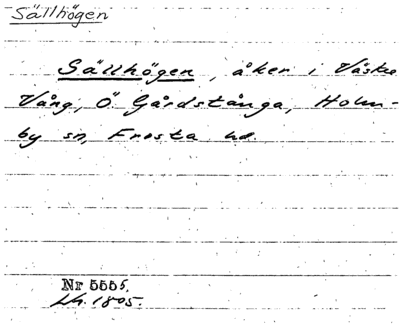 Sällhögen
Sällhögen, åker i Väskre
Vång, Ö Gårdstånga, Holm-
by sn, Frosta hd.
Nr 5555.
Lh. 1805.